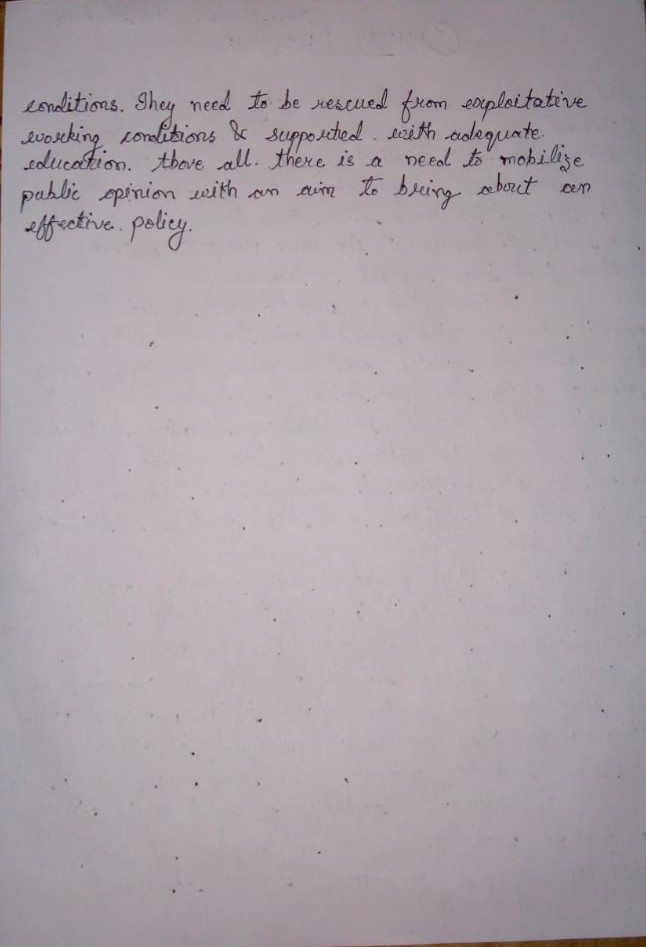 conditions. They need to be rescued from exploitative
working conditions & supported. with adequate.
education. Above all. there is a need to mobilize
public opinion with an aim to bring about an
effective. policy.